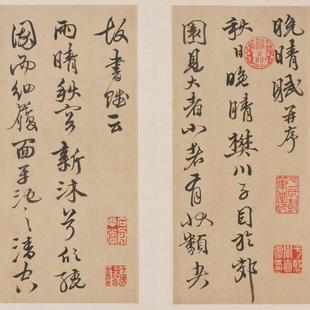 晚晴賦并序
秋日晚晴樊川子目於郊
園見大者小者有狀類夫
故書賦云
雨晴秋容新沐兮忻繞
園而細履面平池之清空